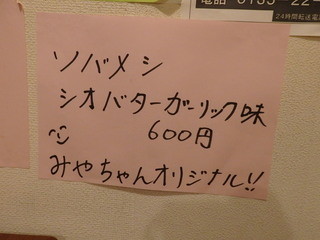 電話 0735-22-4
24時間転送電
ソバメシ
シオバターガーリック味
600円
みやちゃんオリジナル!!